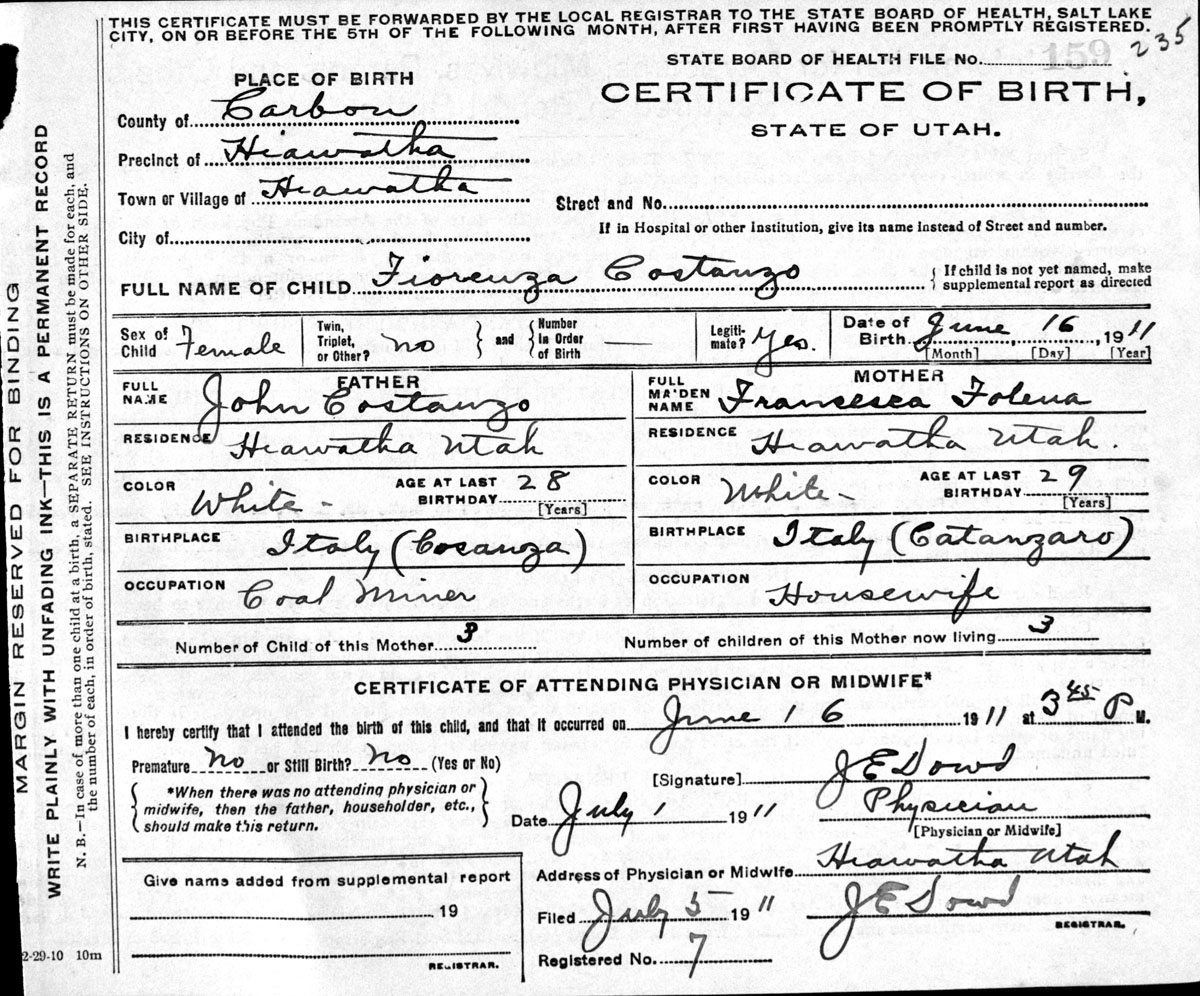 THIS CERTIFICATE MUST BE FORWARDED BY THE LOCAL REGISTRAR TO THE STATE BOARD OF HEALTH, SALT LAKE
CITY, ON OR BEFORE THE 5TH OF THE FOLLOWING MONTH, AFTER FIRST HAVING BEEN PROMPTLY REGISTERED.
235
STATE BOARD OF HEALTH FILE No. 159
PLACE OF BIRTH
CERTIFICATE OF BIRTH,
STATE OF UTAH.
County of Carbon
Precinct of Hiawatha
Town or Village of Hiawatha
Street and No.
City of
If in Hospital or other Institution, give its name instead of Street and number.
FULL NAME OF CHILD Fiorenza Costanzo { If child is not yet named, make
supplemental report as directed
Sex of
Child Female
Twin,
Triplet,
or Other? No } and { Number
In Order
of Birth
Legiti-
mate? Yes.
Date of
Birth June 16, 1911
[Month] [Day] [Year]
FATHER
FULL
NAME John Costanzo
RESIDENCE Hiawatha Utah
COLOR White -
AGE AT LAST
BIRTHDAY 28
[Years]
BIRTHPLACE Italy (Cosanza)
OCCUPATION Coal Miner
MOTHER
FULL
MAIDEN
NAME Francesca Folena
RESIDENCE Hiawatha Utah.
COLOR White -
AGE AT LAST
BIRTHDAY 29
[Years]
BIRTHPLACE Italy (Catanzaro)
OCCUPATION Housewife
Number of Child of this Mother 3
Number of children of this Mother now living 3
CERTIFICATE OF ATTENDING PHYSICIAN OR MIDWIFE*
I hereby certify that I attended the birth of this child, and that it occurred on June 16 1911 at 3 45 P M.
Premature No or Still Birth? No (Yes or No)
{ *When there was no attending physician or
midwife, then the father, householder, etc.,
should make this return. }
[Signature] J E Dowd
Physician
Date July 1 1911
[Physician or Midwife]
Address of Physician or Midwife Hiawatha Utah
Give name added from supplemental report
19
REGISTRAR.
Filed July 5 1911 J E Dowd
REGISTRAR.
Registered No. 7
2-29-10 10m
MARGIN RESERVED FOR BINDING
WRITE PLAINLY WITH UNFADING INK—THIS IS A PERMANENT RECORD
N. B.—In case of more than one child at a birth, a SEPARATE RETURN must be made for each, and
the number of each, in order of birth, stated. SEE INSTRUCTIONS ON OTHER SIDE.